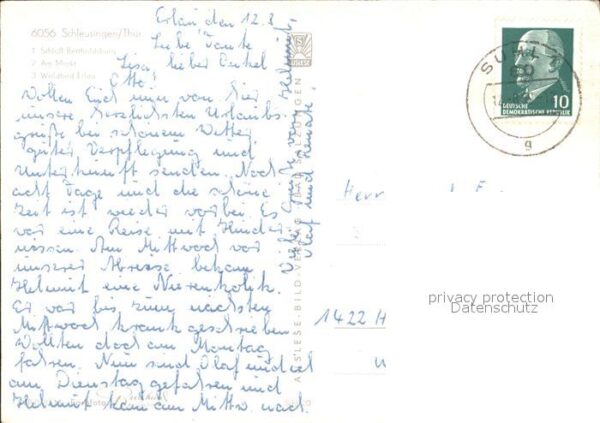 6056 Schleusingen/Thür.
1 Schloß Bertholdsburg
2 Am Markt
3 Wildbad Erlau
Erlau den 12.8
Liebe Tante
Lisa, lieber Onkel
Otto!
Wollen Euch nun von hier
unsere herzlichsten Urlaubs-
grüße bei schönem Wetter
guter Verpflegung und
Unterkunft senden. Noch
acht Tage und die schöne
Zeit ist wieder vorbei. Es
war eine Reise mit Hinder
nissen. Am Mittwoch vor
unserer Abreise bekam
Helmut eine Nierenkolik.
Er war bis zum nächsten
Mittwoch krank geschrieben
Wollten doch am Montag
fahren. Nun sind Olaf und ich
am Dienstag gefahren und
Helmut kam am Mittw. nach.
Viele Grüße von Helmut
Olaf und Renate!
AUSLESE-BILD-VERLAG BAD SALZUNGEN
AUSLESE
SUHL
g
DEUTSCHE
DEMOKRATISCHE REPUBLIK
10
Herr
1422 H
privacy protection
Datenschutz